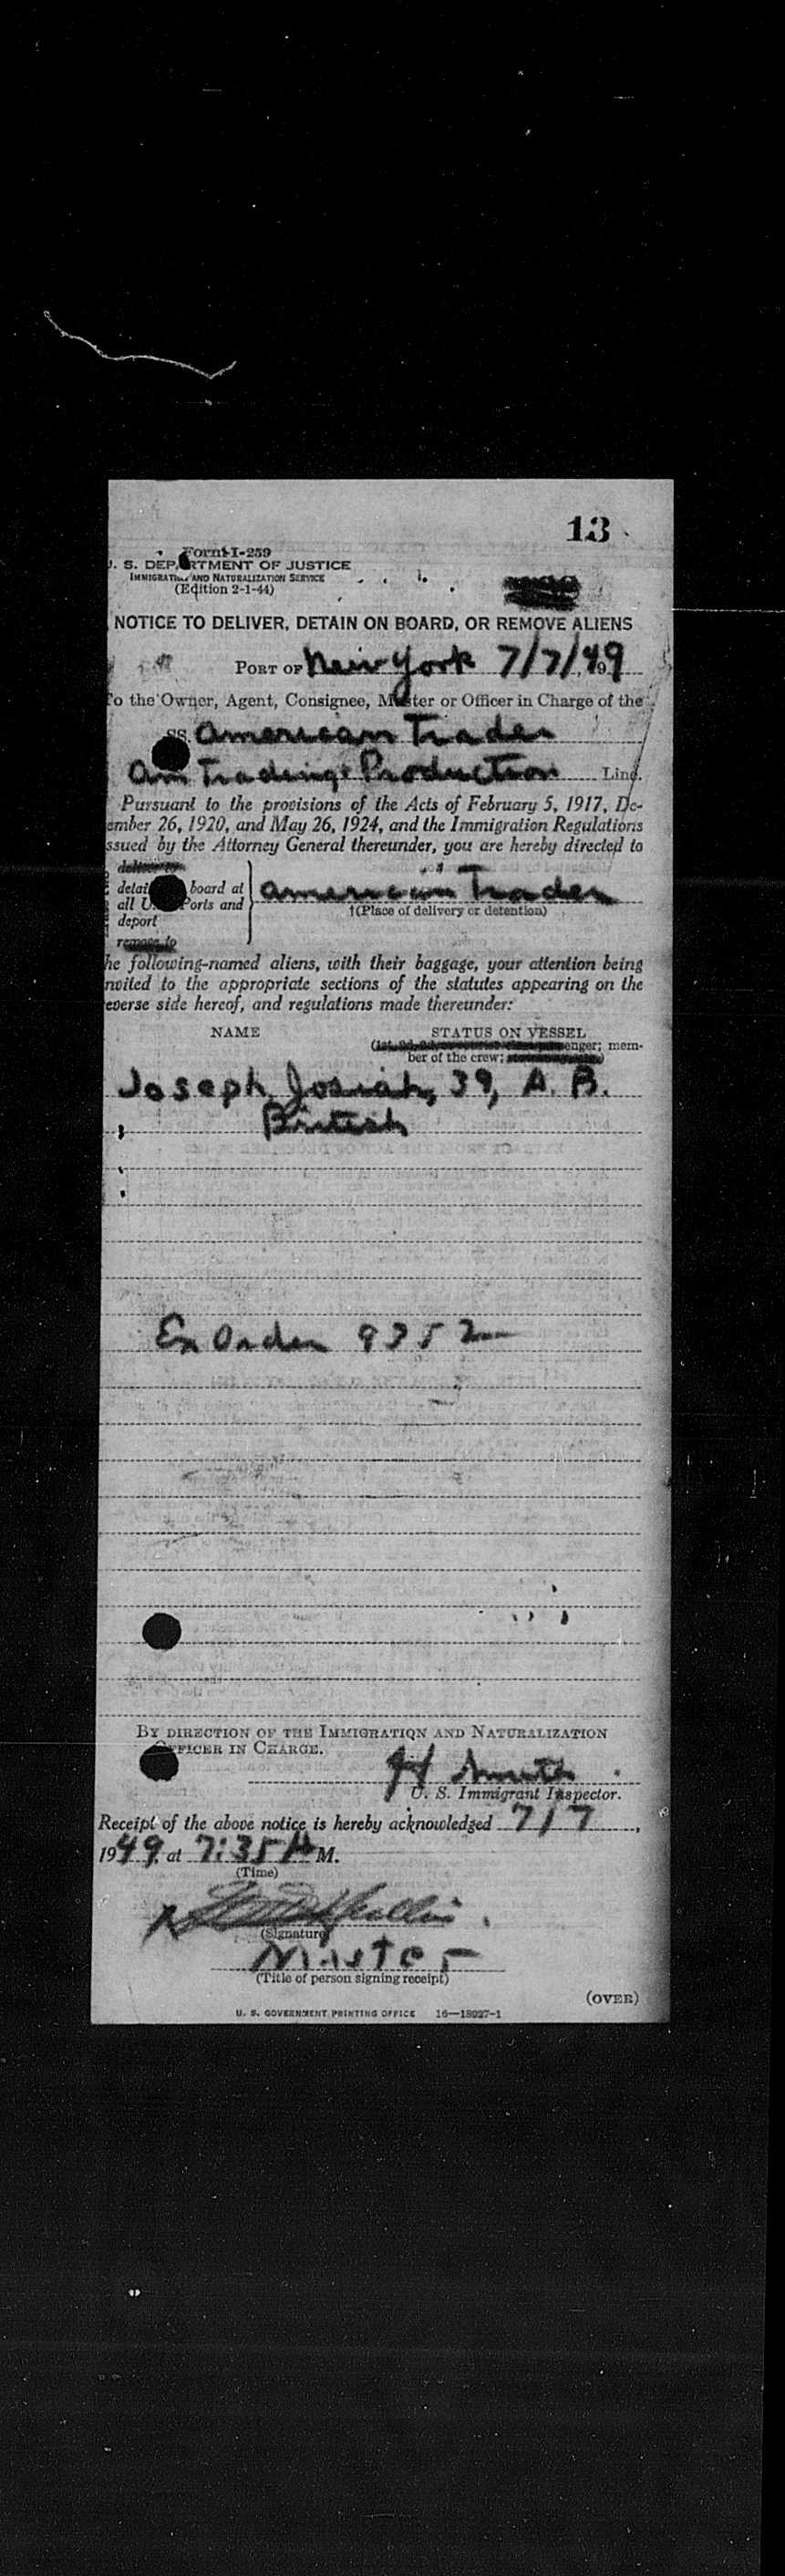 13
Form I-259
U. S. DEPARTMENT OF JUSTICE
IMMIGRATION AND NATURALIZATION SERVICE
(Edition 2-1-44)
NOTICE TO DELIVER, DETAIN ON BOARD, OR REMOVE ALIENS
PORT OF New York 7/7/49
To the Owner, Agent, Consignee, Master or Officer in Charge of the
SS. American Trader
Am Trading & Production Line.
Pursuant to the provisions of the Acts of February 5, 1917, De-
cember 26, 1920, and May 26, 1924, and the Immigration Regulations
issued by the Attorney General thereunder, you are hereby directed to
deliver to
detain board at American Trader
all U. Ports and
†(Place of delivery or detention)
deport
remove to
he following-named aliens, with their baggage, your attention being
nvited to the appropriate sections of the statutes appearing on the
everse side hereof, and regulations made thereunder:
NAME STATUS ON VESSEL
enger; mem-
ber of the crew;
Joseph, Josiah, 39, A. B.
British
Ex Order 9352
BY DIRECTION OF THE IMMIGRATION AND NATURALIZATION
OFFICER IN CHARGE.
Smith
U. S. Immigrant Inspector.
Receipt of the above notice is hereby acknowledged 7/7,
1949, at 7:35 A M.
(Time)
(Signature)
Master
(Title of person signing receipt)
(OVER)
U. S. GOVERNMENT PRINTING OFFICE 16—18927-1